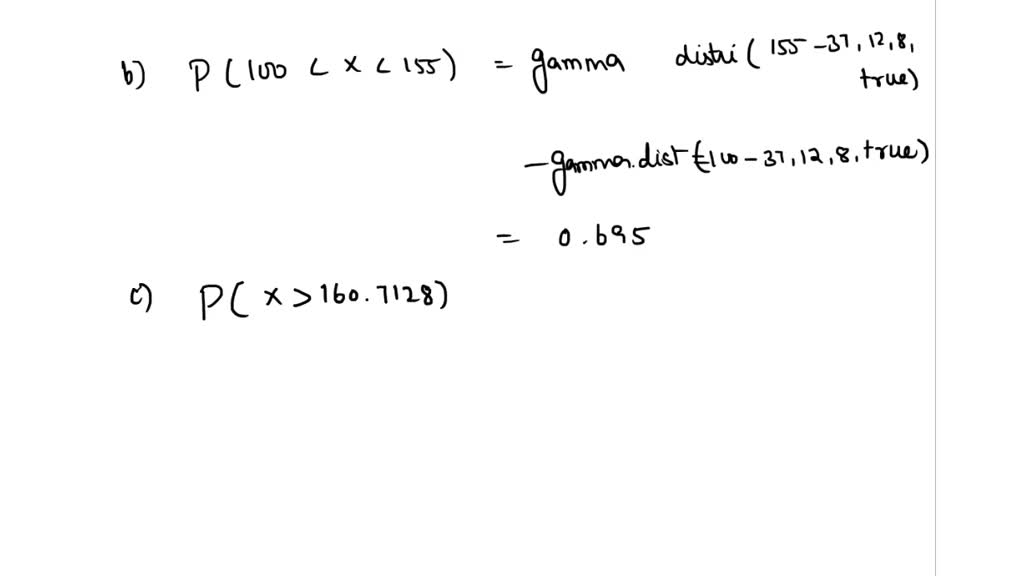 b) P(100 < x < 155) = gamma distri(155-37,12,8,
true)
-gamma.dist(-100-37,12,8,true)
= 0.695
c) P(x>160.7128)